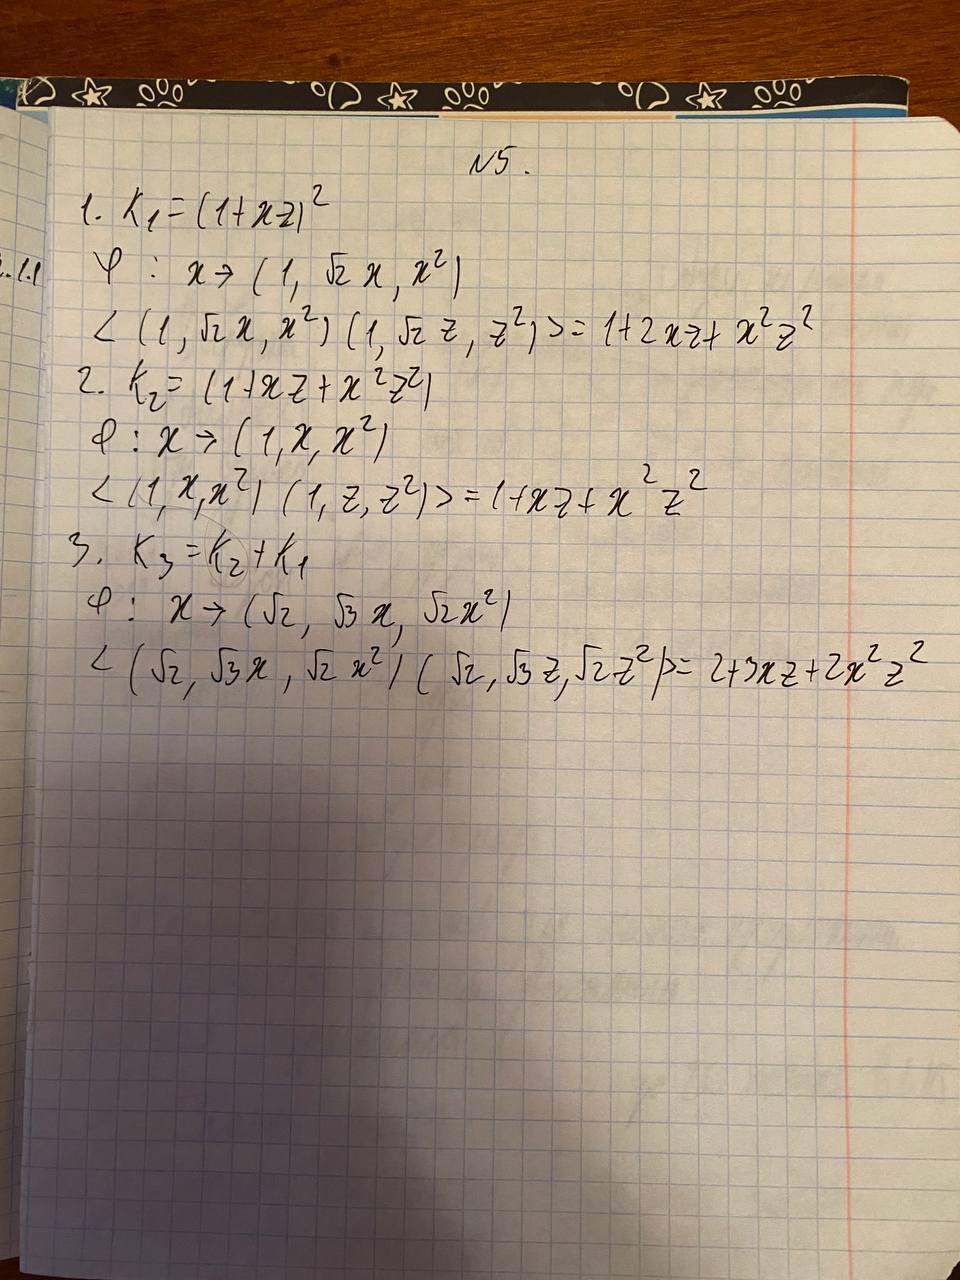 N5.
1. K₁ = (1+xz)²
φ : x → (1, √2 x, x²)
< (1, √2 x, x²) (1, √2 z, z²) > = 1+2xz+x²z²
2. K₂ = (1+xz+x²z²)
φ : x → (1, x, x²)
< (1, x, x²) (1, z, z²) > = 1+xz+x²z²
3. K₃ = K₂ + K₁
φ : x → (√2, √3 x, √2 x²)
< (√2, √3 x, √2 x²) (√2, √3 z, √2 z²) > = 2+3xz+2x²z²